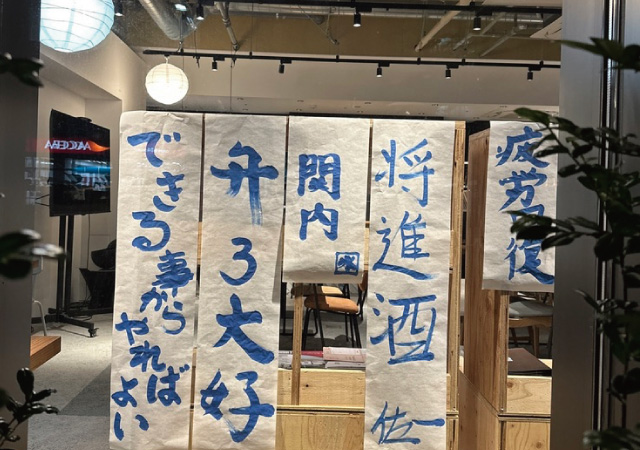 疲労回復
将進酒
佐一
関内
弁3大好
できる事から
やればよい